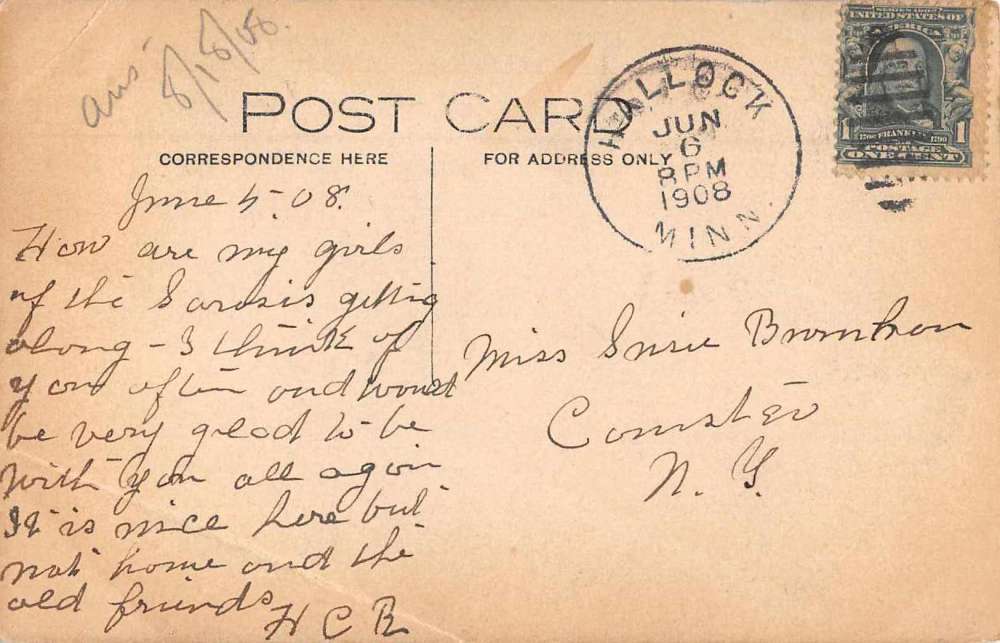 ans' 8/18/08.
POST CARD
CORRESPONDENCE HERE
FOR ADDRESS ONLY
HALLOCK
JUN
6
8 PM
1908
MINN.
SERIES 1902
UNITED STATES OF
AMERICA
1 FRANKLIN 1
1706 1790
POSTAGE
ONE CENT
June 5. 08.
How are my girls
of the Sorosis getting
along - I think of
you often and would
be very glad to be
with you all again
It is nice here but
not home and the
old friends
H C R
Miss Susie
N. Y.